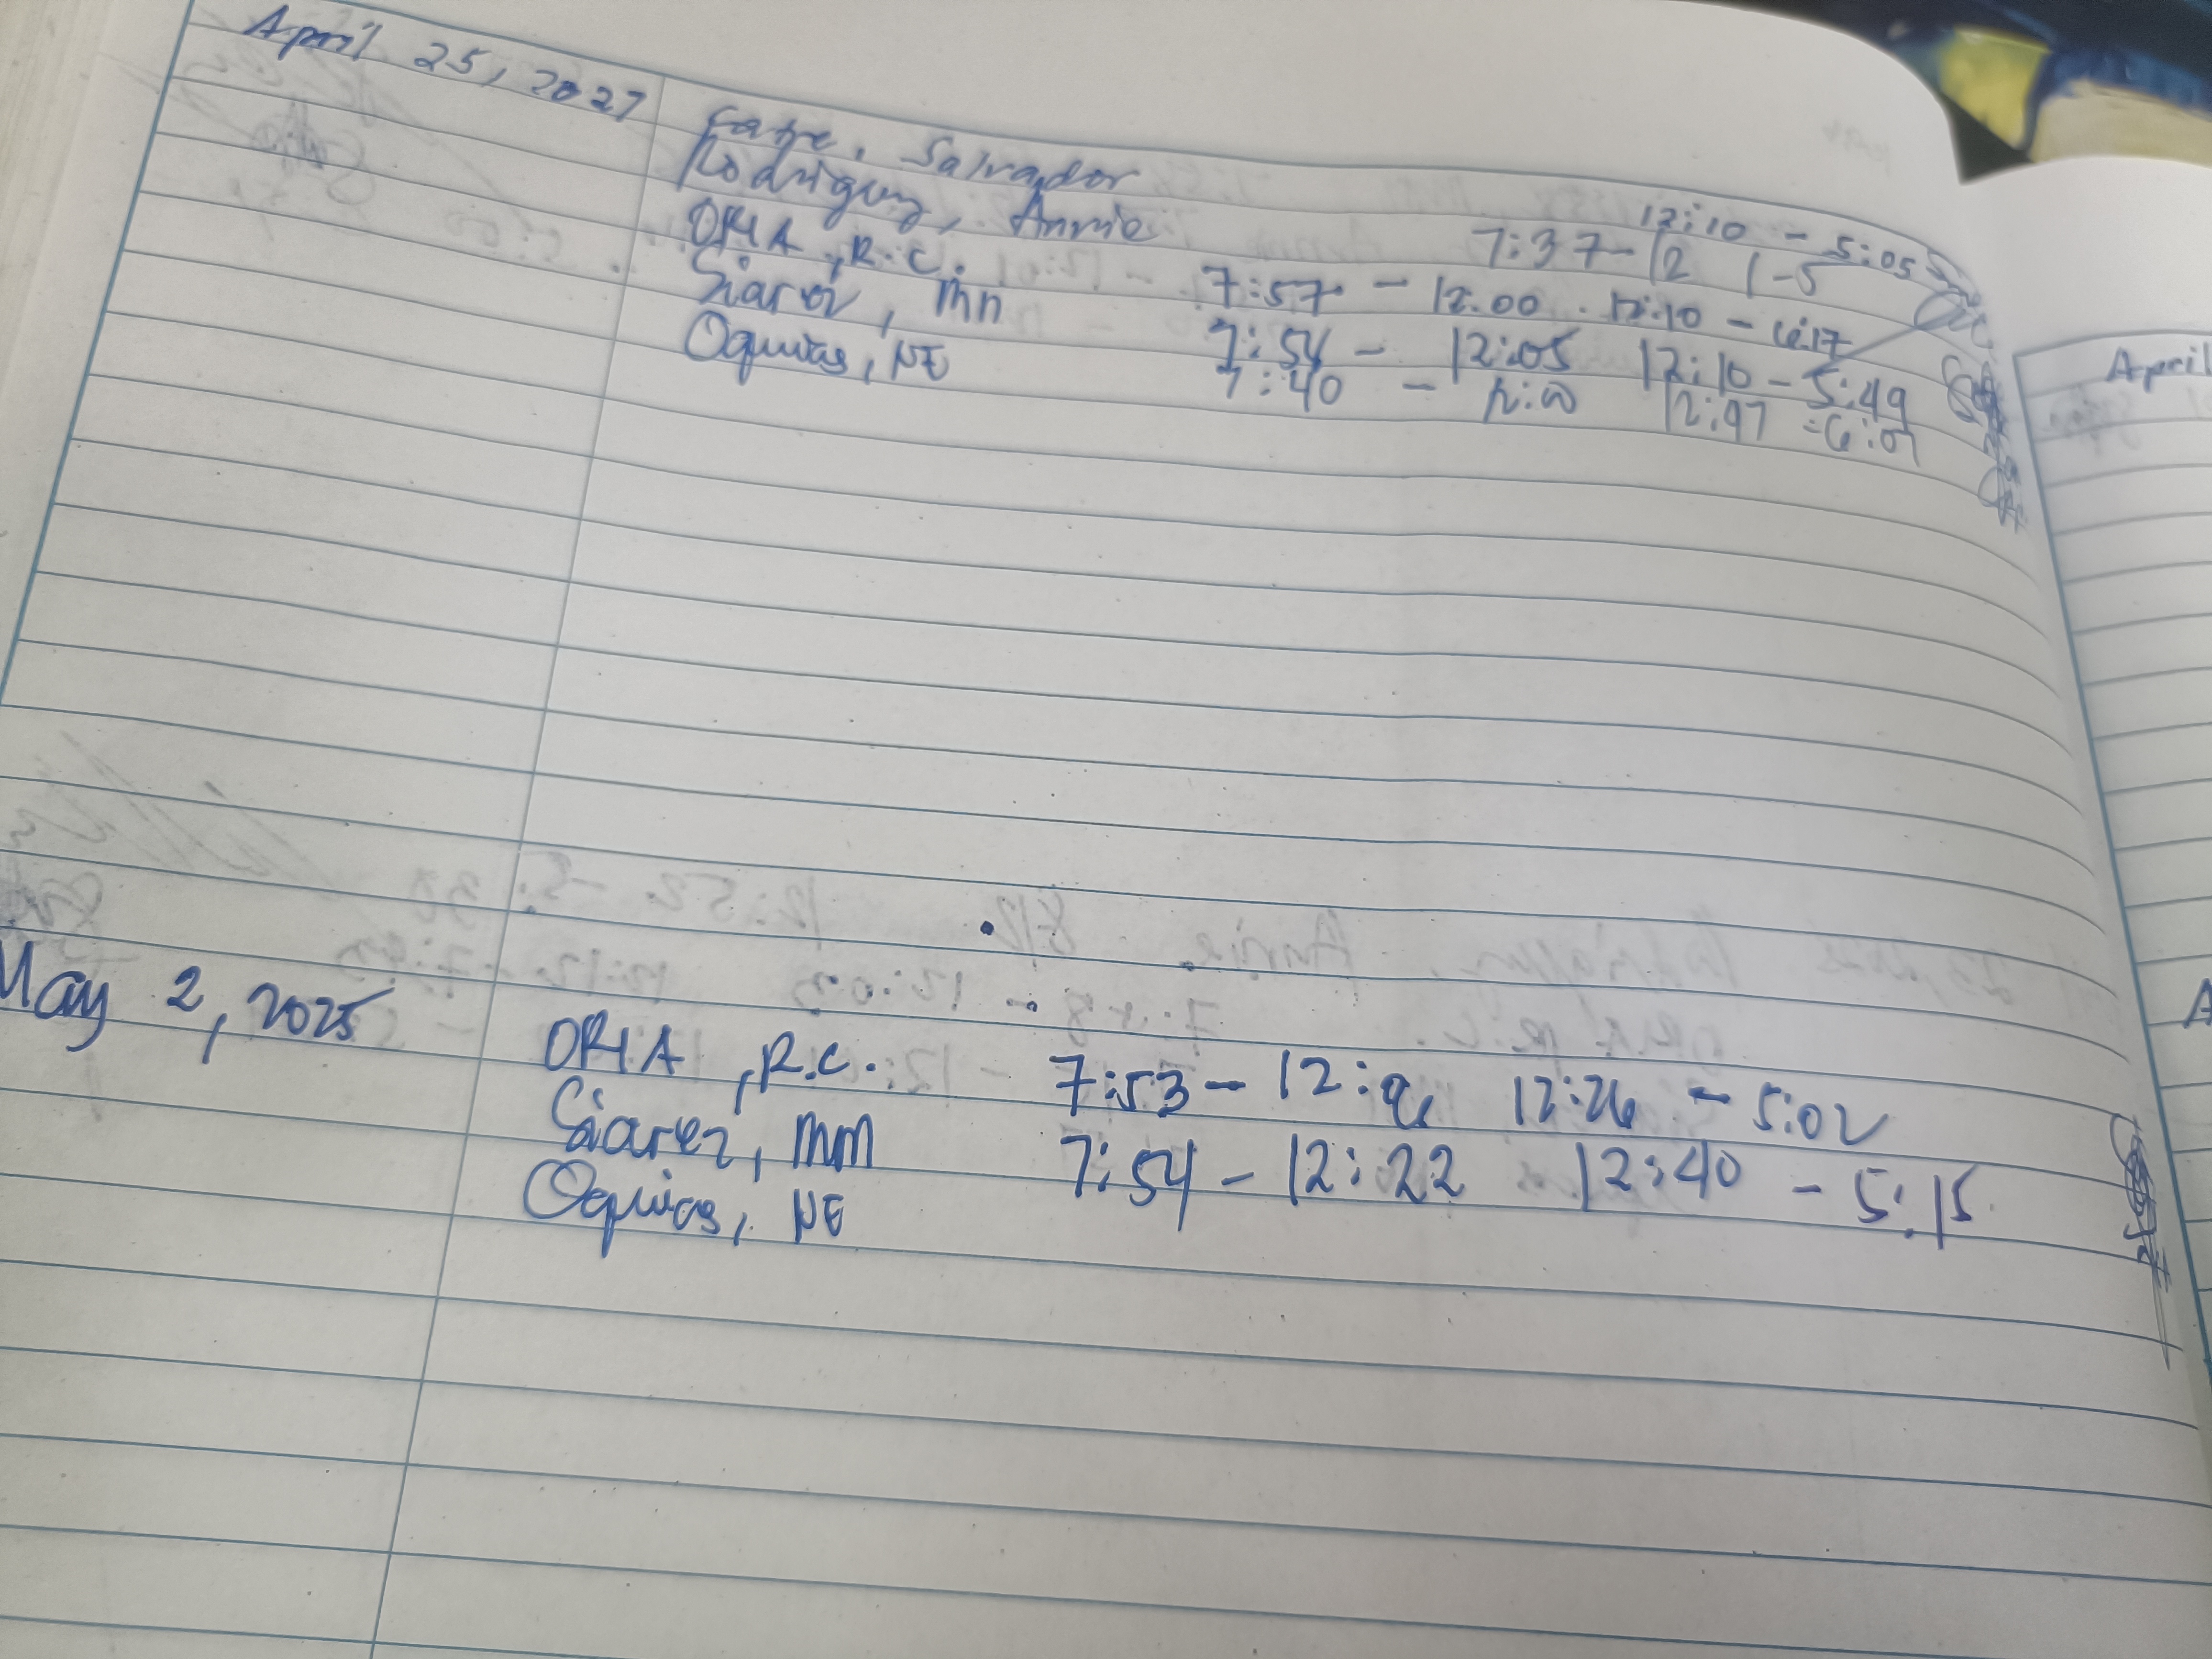 April 25, 2027
Salvador 12:10 - 5:05
Rodriguez, Annie 7:37-12 1-5
ORIA, R.C. 7:57 - 12:00 12:10 - 6:17
Siarez, MM 7:54 - 12:05 12:10 - 5:49
Oquias, NE 7:40 - 12:00 12:47
May 2, 2025
ORIA, R.C. 7:53 - 12:26 - 5:02
Siarez, MM 7:54 - 12:22 12:40 - 5:15
Oquias, NE
April